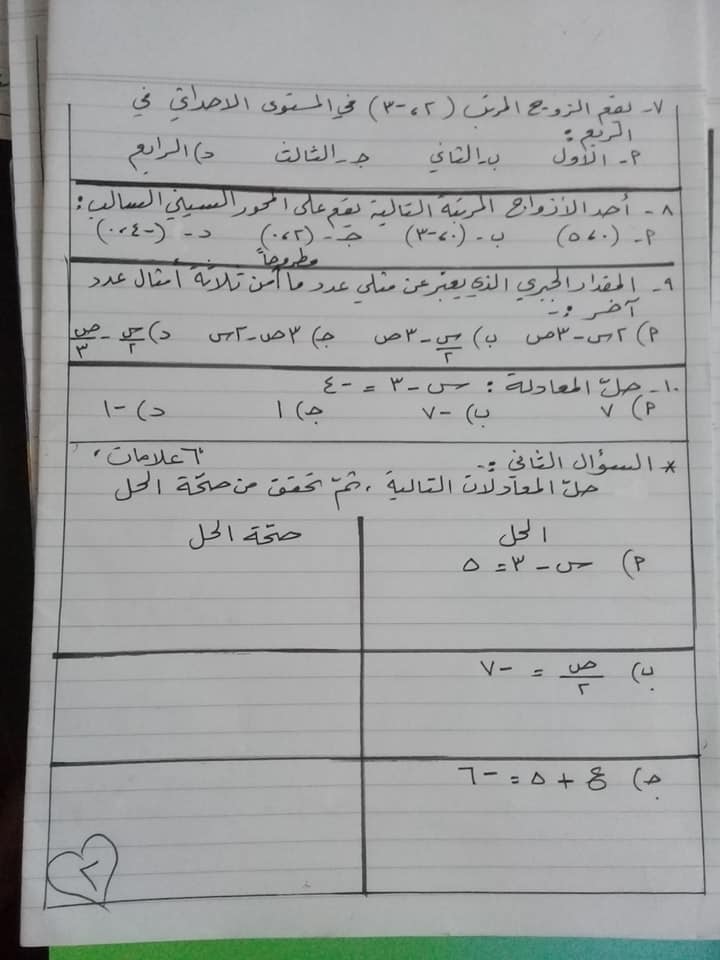 ٧- يقع الزوج المرتب (٢، -٣) في المستوى الاحداثي في
الربع :
أ- الأول ب- الثاني ج- الثالث د) الرابع
٨- أحد الأزواج المرتبة التالية يقع على المحور السيني السالب :
أ- (٥،٠) ب- (٠، -٣) ج- (٠،٢) د- (-٠،٤)
مطروحاً
٩- المقدار الجبري الذي يعبّر عن مثلي عدد ما من ثلاثة أمثال عدد
آخر :-
أ) ٢س - ٣ص ب) س/٢ - ٣ص ج) ٣ص - ٢س د) س/٢ - ص/٣
١٠- حلّ المعادلة : س - ٣ = -٤
أ) ٧ ب) -٧ ج) ١ د) -١
* السؤال الثاني :- ٦ علامات ،
حلّ المعادلات التالية ، ثمّ تحقق من صحّة الحل
الحل صحّة الحل
أ) س - ٣ = ٥
ب) ص/٢ = -٧
ج) ع + ٥ = -٦
٢